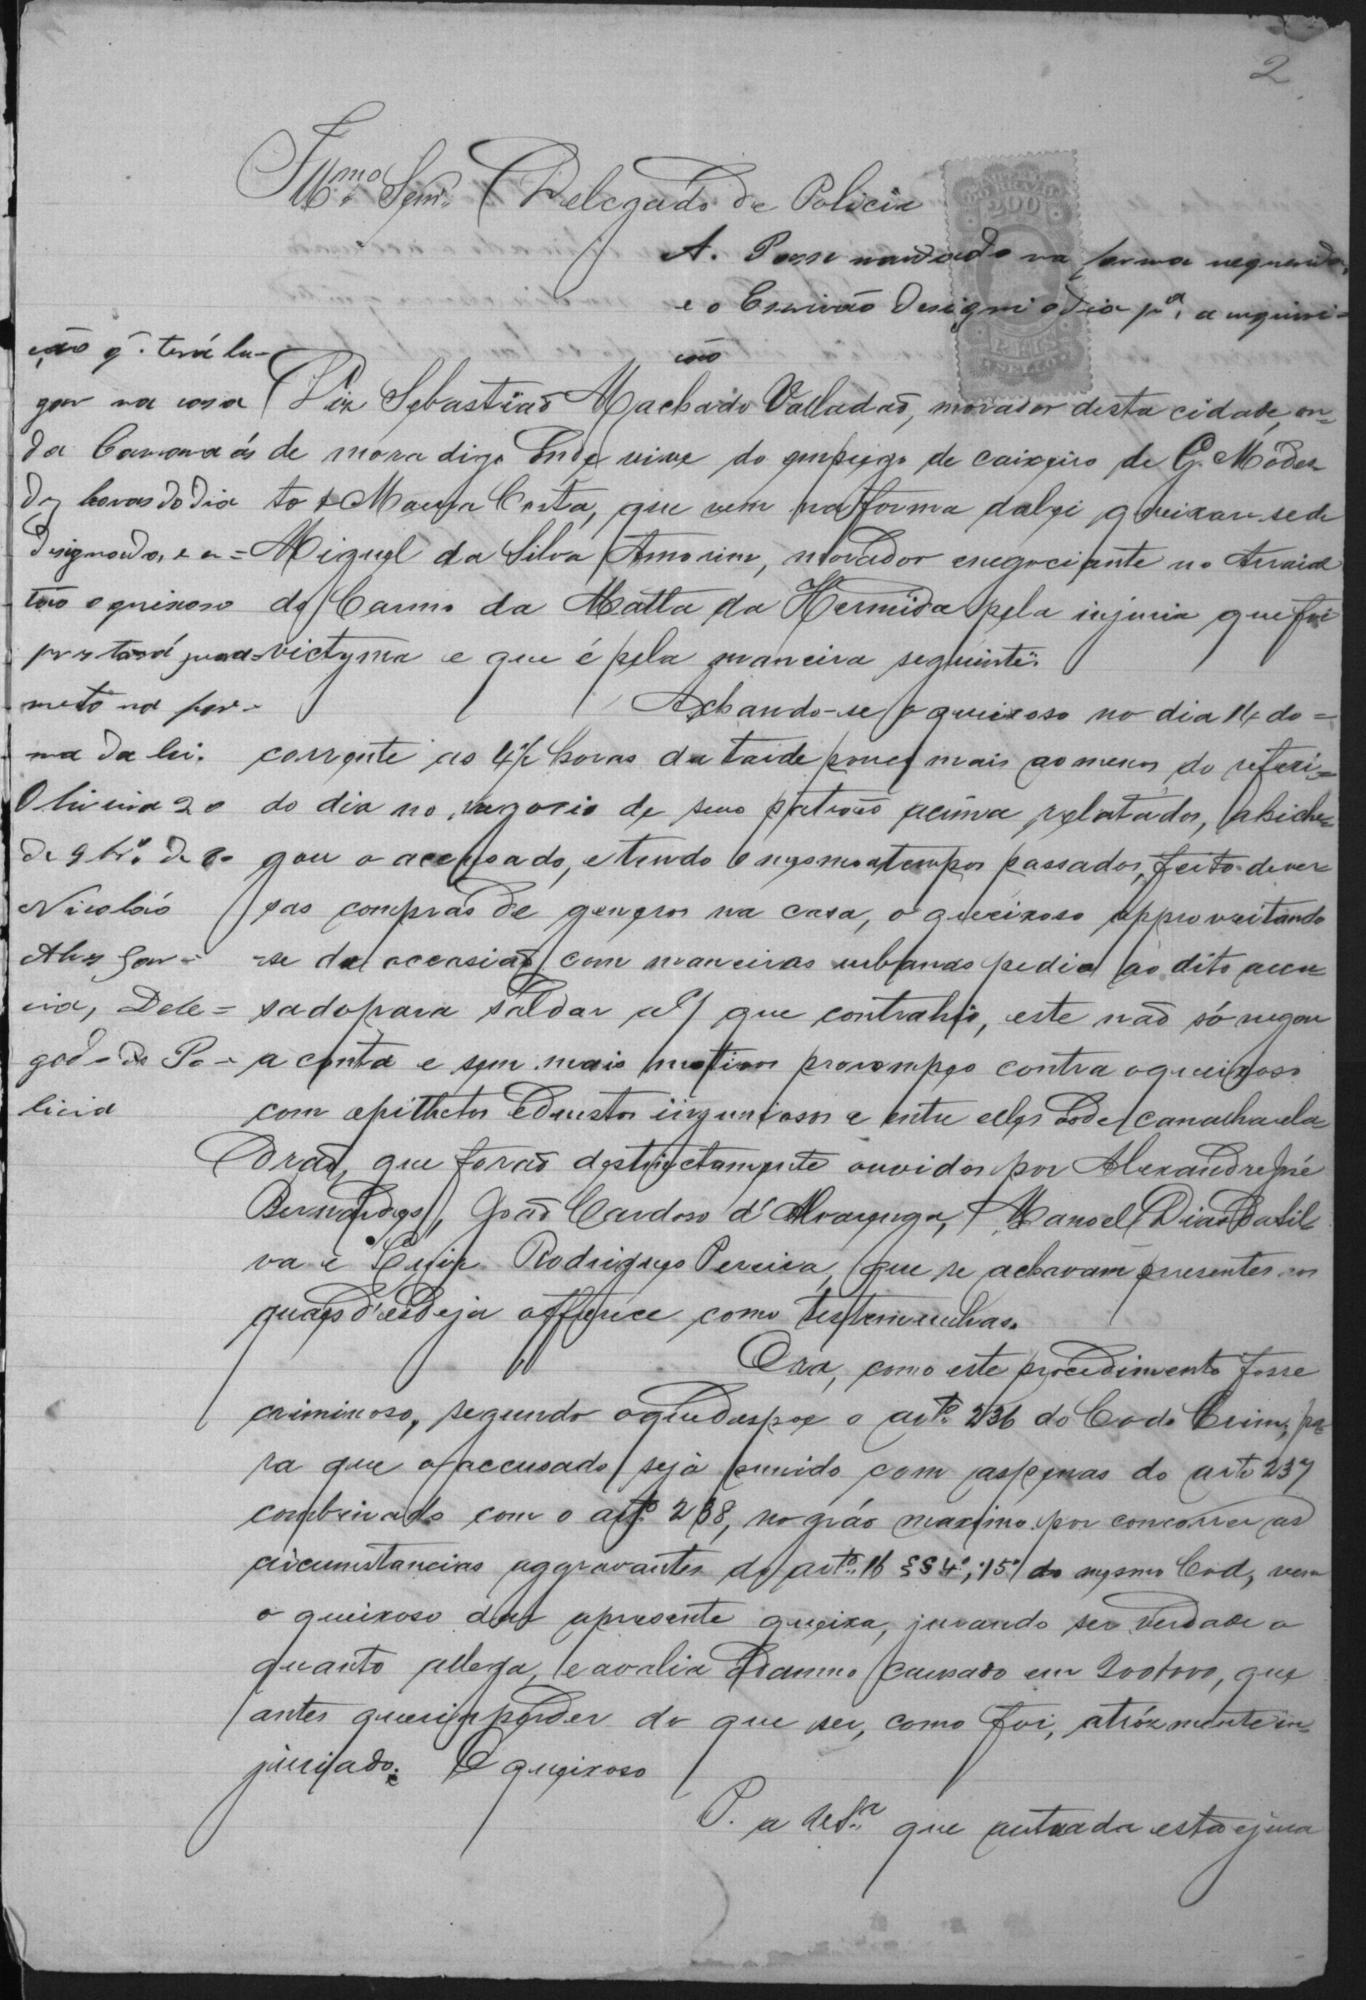 2
Illmo. Senr. Delegado de Policia
A. Passe mandado na forma requerida,
e o Escrivão designe o dia pa. a inquiri-
ção
ção q. terá lu-
gar na casa
da Camara ás
dez horas do dia
designado, e en-
tão o queixoso
prestará jura-
mento na for-
ma da lei.
Oliveira 20
de 9bro. de 80
Nicoláo
Alves Gar-
cia, Dele-
gado de Po-
licia
Diz Sebastião Machado Valladão, morador desta cidade, on-
de mora digo onde vive do emprego de caixeiro de G. Modes-
to & Moura Costa, que vem na forma da lei queixar-se de
Miguel da Silva Amorim, morador e negociante no Arraial
do Carmo da Matta da Hermida pela injuria que foi
victyma e que é pela maneira seguinte:
Achando-se o queixoso no dia 14 do
corrente as 4½ horas da tarde pouco mais ao menos do referi-
do dia no negocio de seus patrões acima relatados, ahi che-
gou o accusado, e tendo o mesmo a tempos passados, feito diver-
sas compras de generos na casa, o queixoso approveitando
-se da occasião com maneiras urbanas pedio ao dito accu-
sado para saldar a c/ que contrahio, este não só negou
a conta e sem mais motivos prorompeo contra o queixoso
com epithetos e injuriosos e entre elles o de canalha e la-
drão, que forão destinctamente ouvidos por Alexandre José
Bernardes, João Cardoso d'Alvarenga, Manoel Dias da Sil-
va e Luiz Rodrigues Pereira, que se achavam presentes os
quaes desde já offerece como testemunhas.
Ora, como este procedimento fosse
criminoso, segundo o que despoe o arto. 236 do Codo Crim, pa-
ra que o accusado seja punido com as penas do arto 237
combinado com o arto. 238, no gráo maximo por concorrer as
circumstancias aggravantes do arto. 16 §§ 4º, 15º do mesmo Cod, vem
o queixoso dar a presente queixa, jurando ser verdade o
quanto allega, e avalia o damno causado em 200$000, que
antes queria perder do que ser, como foi, atrózmente in-
juriado. O queixoso
P. a que autuada esta e jura